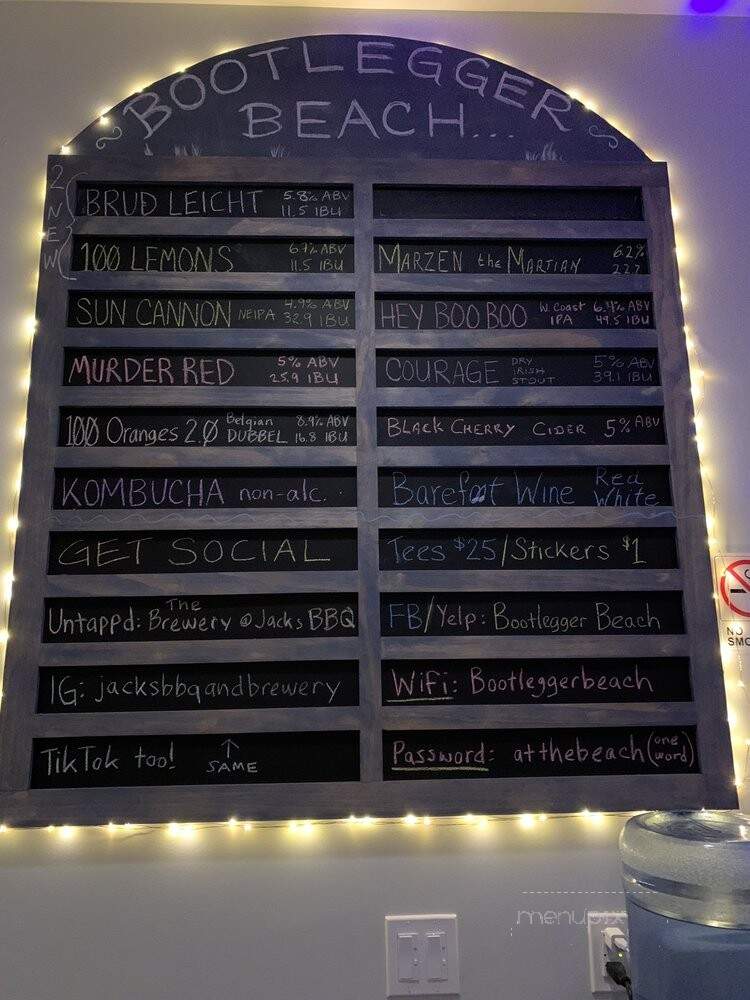 BOOTLEGGER
BEACH...
2 NEW
BRUD LEICHT 5.8% ABV
11.5 IBU
100 LEMONS 6.7% ABV
11.5 IBU
SUN CANNON NEIPA 4.9% ABV
32.9 IBU
MURDER RED 5% ABV
25.9 IBU
100 Oranges 2.0 Belgian DUBBEL 8.9% ABV
16.8 IBU
KOMBUCHA non-alc.
GET SOCIAL
Untappd: The Brewery @ Jacks BBQ
IG: jacksbbqandbrewery
TikTok too! ↑
SAME
MARZEN the MARTIAN 6.2%
22.7
HEY BOO BOO W. Coast IPA 6.4% ABV
49.5 IBU
COURAGE DRY IRISH STOUT 5% ABV
39.1 IBU
BLACK CHERRY CIDER 5% ABV
Barefoot Wine Red
White
Tees $25/Stickers $1
FB/Yelp: Bootlegger Beach
WiFi: Bootleggerbeach
Password: atthebeach (one word)
NO
SMO
menupix